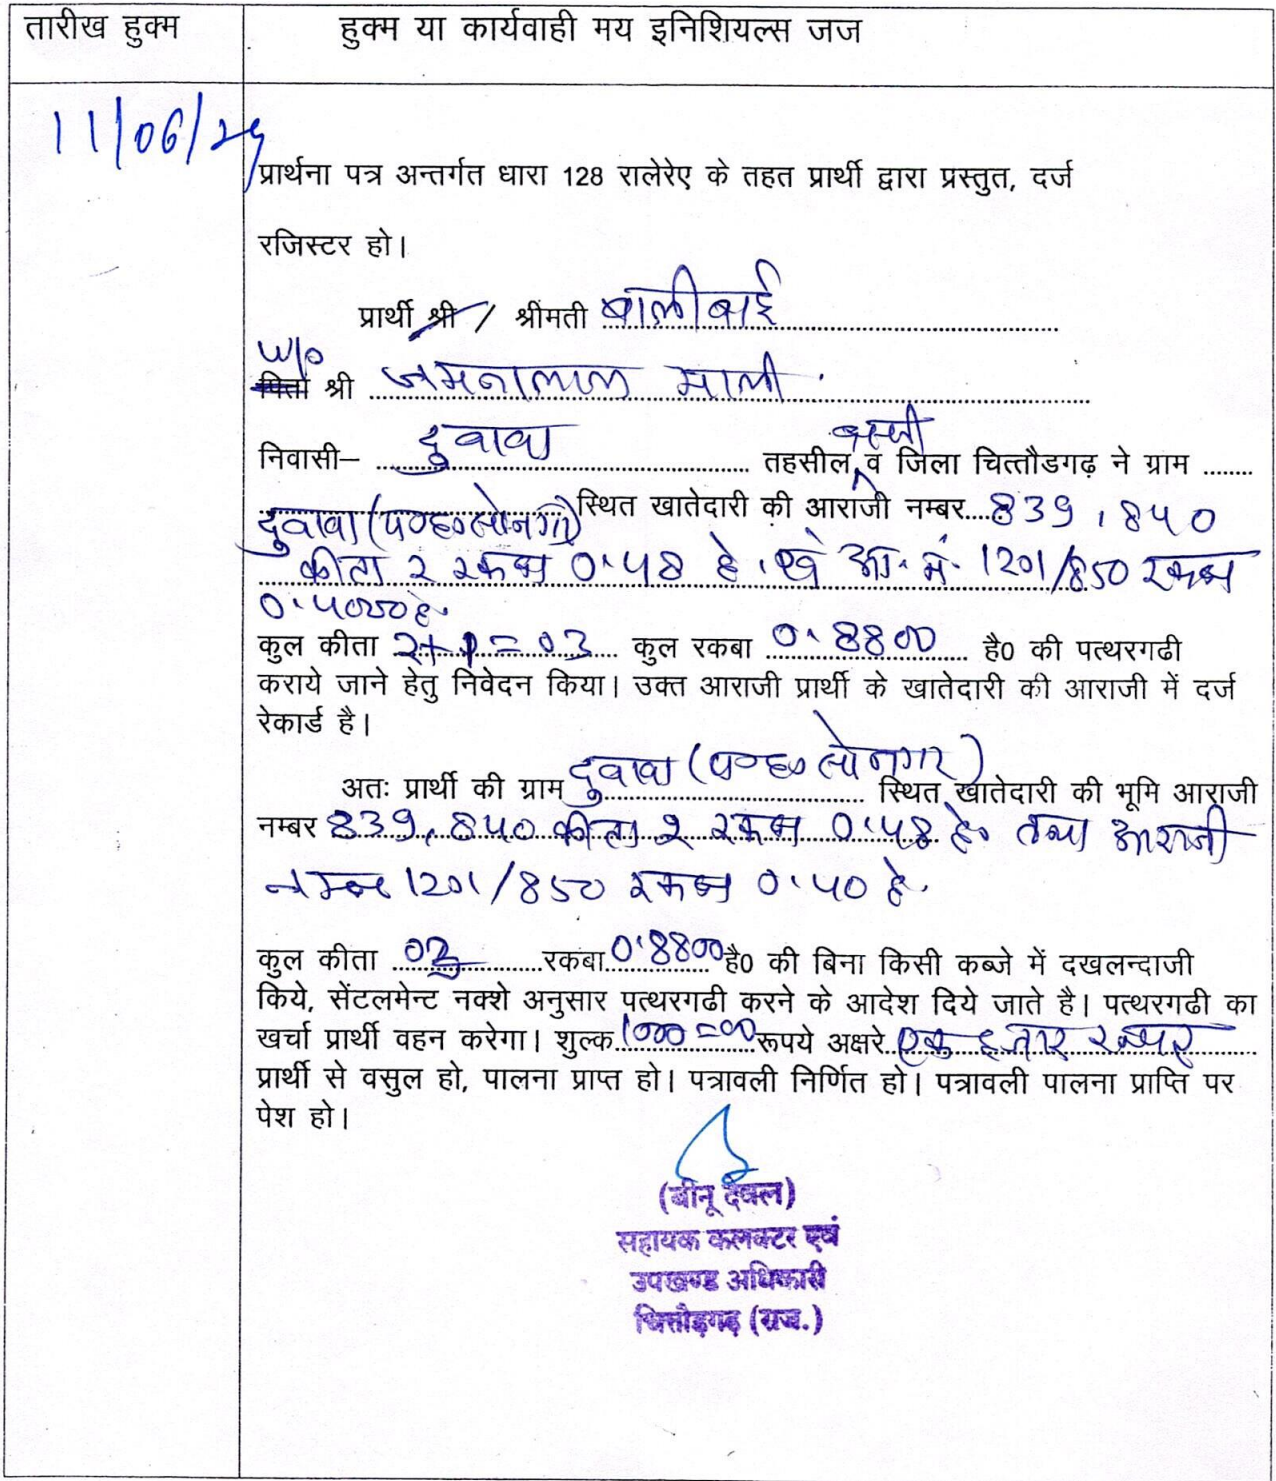 तारीख हुक्म
हुक्म या कार्यवाही मय इनिशियल्स जज
11/06/25
प्रार्थना पत्र अन्तर्गत धारा 128 रालेरेए के तहत प्रार्थी द्वारा प्रस्तुत, दर्ज
रजिस्टर हो।
प्रार्थी श्री / श्रीमती बालीबाई
w/o
पिता श्री जमनालाल माली
बस्सी
निवासी– दुवावा तहसील व जिला चित्तौडगढ़ ने ग्राम
दुवावा (प०ह० सोनगर) स्थित खातेदारी की आराजी नम्बर 839, 840
कीता 2 रकबा 0.48 हे. एवं आ. नं. 1201/850 रकबा
0.4000 हे.
कुल कीता 2+1=03 कुल रकबा 0.8800 है0 की पत्थरगढी
कराये जाने हेतु निवेदन किया। उक्त आराजी प्रार्थी के खातेदारी की आराजी में दर्ज
रेकार्ड है।
अतः प्रार्थी की ग्राम दुवावा (प०ह० सोनगर) स्थित खातेदारी की भूमि आराजी
नम्बर 839, 840 कीता 2 रकबा 0.48 हे० तथा आराजी
नम्बर 1201/850 रकबा 0.40 हे.
कुल कीता 03 रकबा 0.8800 है0 की बिना किसी कब्जे में दखलन्दाजी
किये, सेंटलमेन्ट नक्शे अनुसार पत्थरगढी करने के आदेश दिये जाते है। पत्थरगढी का
खर्चा प्रार्थी वहन करेगा। शुल्क 1000=00 रूपये अक्षरे एक हजार रूपए
प्रार्थी से वसुल हो, पालना प्राप्त हो। पत्रावली निर्णित हो। पत्रावली पालना प्राप्ति पर
पेश हो।
(बीनू देवल)
सहायक कलक्टर एवं
उपखण्ड अधिकारी
चित्तौड़गढ़ (राज.)